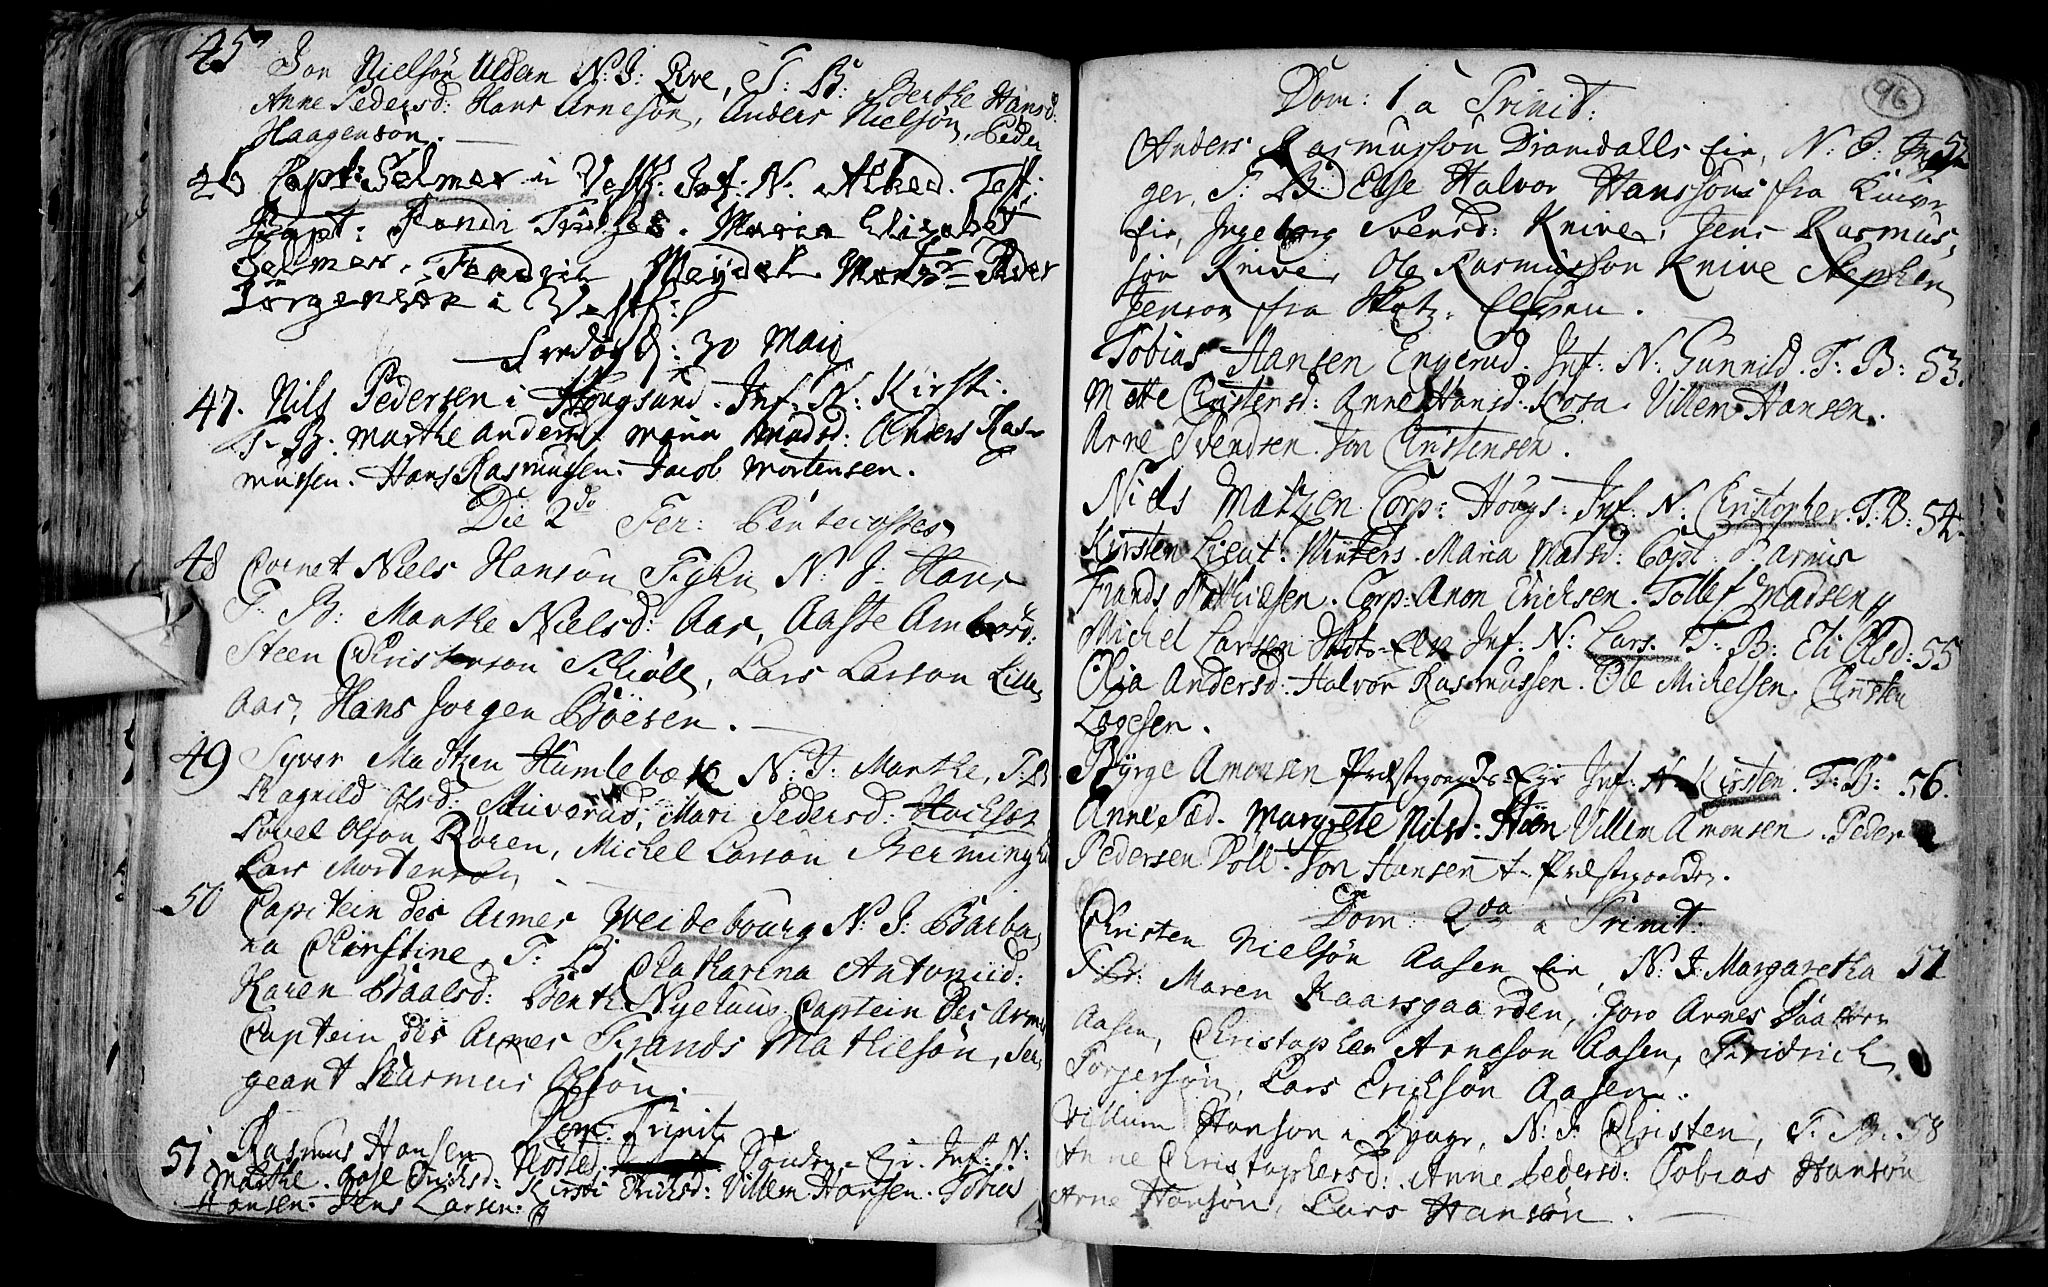 45 Jon Nielsön Uldern N: J: Eve, T: B: Berthe Hansd:
Anne Pedersd: Hans Arnesön, Anders Nielsön, Peder
Haagensön.
46 Capt: Selmer i Vestf: Inf: N: Alhed. Test:
Capt: Randi Maria Elizabet
Selmer, Meydel. Peder
Jörgensön i Vestf:
Fredag d: 30 Maij
47. Nils Pedersen i Hougsund. Inf. N: Kirsti.
T. B: Marthe Andersd: Maria Madsd: Anders Ras-
mussen. Hans Rasmussen. Jacob Mortensen.
Die 2do Fer: Pentecostes
48 Cornet Niels Hansön Fyhn N: J: Hans
T: B: Marthe Nielsd: Aas, Aaste Ambiörsd:
Steen Christenson Schiöll, Lars Larson Lille
Aas, Hans Jorgen Boesen.
49 Syver Madtzen Humlebæk N: J: Marthe, T: B
Ragnild Olsd: Stuverud, Mari Pedersd: Hocksön
Povel Olson Roren, Michel Larsön
Lars Mortensön
50 Capitein des Armes Weidebourg N: J: Barba
ra Chirstine, T: B Chatharina Antoniid:
Karen Baalsd: Benth Nyehuus Captein des Armes
Captein des Armes Frands Mathiesön, Ser
geant Rasmus Olsön.
Dom: Trinit
51 Rasmus Hansen Inf: N:
Marthe. Aase Erichsd: Kirsti Erichsd: Villem Hansen. Tobias
Hansen. Jens Larsen.
96
Dom: 1 a Trinit:
Anders Rasmussön Dramdalls Eie, N: J: In 52
ger, T: B: Else Halvor Hanssöns fra Knive
Eie, Ingeborg Svensd: Knive, Jens Rasmus
sön Knive, Ole Rasmussön Knive Stephen
Jenson fra
Tobias Hansen Engerud. Inf: N: Gunnild. T: B: 53.
Mette Christensd: Anne Hansd: Kosa. Villem Hansen.
Arne Svendsen. Jon Christensen.
Niels Matzen Corp: Hougs: Inf: N: Christopher. T: B: 54.
Kirsten Lieut: Winters. Maria Matsd: Capt:
Frands Mathiesen. Corp: Anon Erichsen. Tollef Madsen
Michel Larsen Inf: N: Lars. T: B: Eli Olsd: 55
Olia Andersd: Halvor Rasmussen. Ole Michelsen. Christen
Lagesen.
Byrge Amonsen Præstegaards-Eje Inf: N: Kirsten. T: B: 56.
Anne Margrete Nilsd: Villem Amonsen. Peder
Pedersen Doll. Jon Hansen Præstegaarden.
Dom: 2da a Trinit:
Christen Nielsön Aasen Eie, N: J: Margaretha 57
T: B: Maren Kaarsgaarden, Goro Arnes Daatter
Aasen, Christopher Arneson Aasen, Fridrich
Torgersön, Lars Ericksön Aasen.
Villum Hanson i Ryagr, N: J: Christen, T: B: 58
Anne Christophersd: Anne Pedersd: Tobias Hansön
Arne Hansön, Lars Hansön.